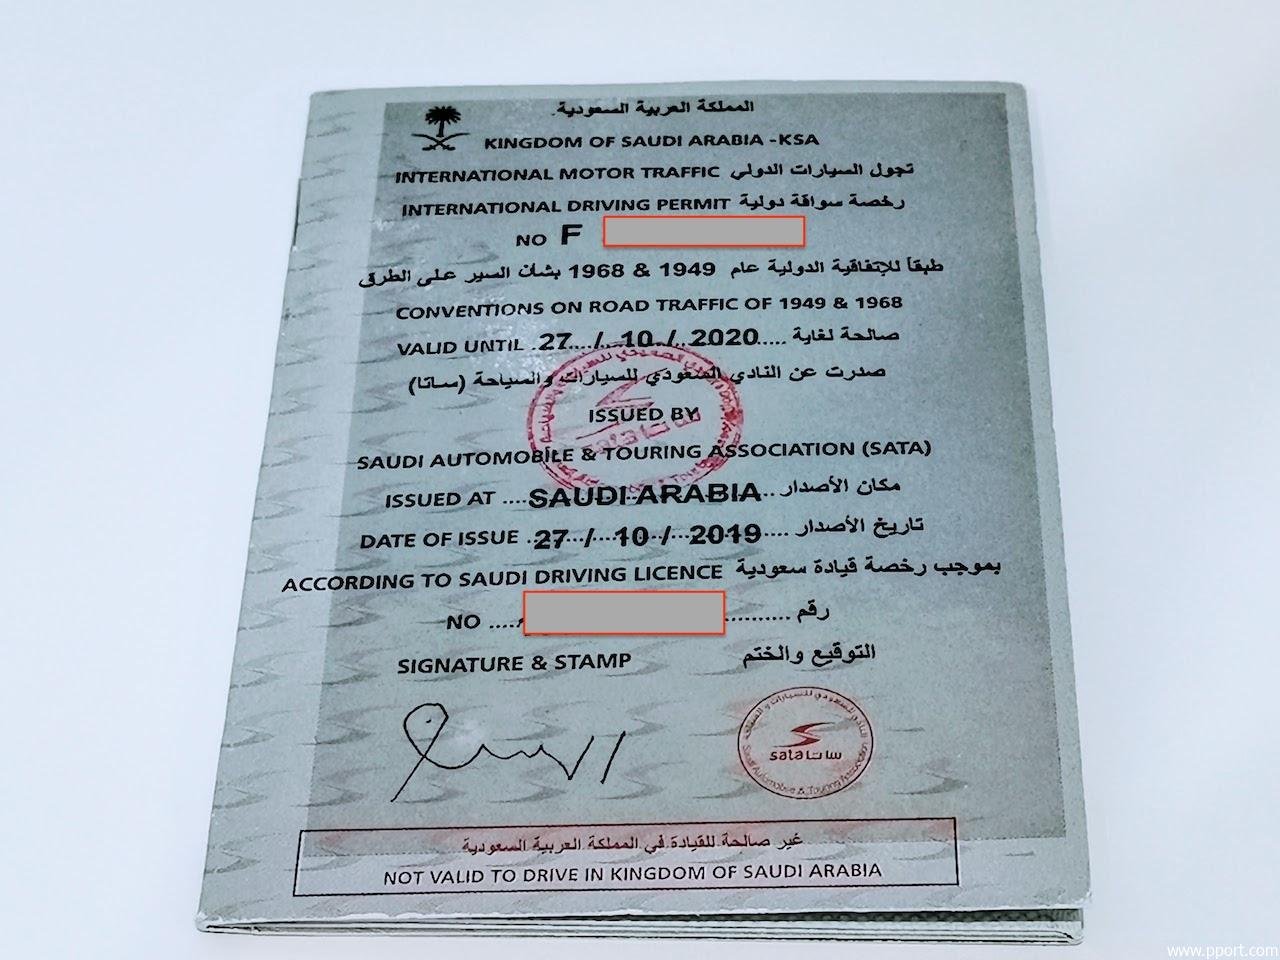 المملكة العربية السعودية
KINGDOM OF SAUDI ARABIA -KSA
INTERNATIONAL MOTOR TRAFFIC تجول السيارات الدولي
INTERNATIONAL DRIVING PERMIT رخصة سواقة دولية
NO F
طبقاً للإتفاقية الدولية عام 1949 & 1968 بشأن السير على الطرق
CONVENTIONS ON ROAD TRAFFIC OF 1949 & 1968
VALID UNTIL 27 / 10 / 2020 صالحة لغاية
صدرت عن النادي السعودي للسيارات والسياحة (ساتا)
ISSUED BY
SAUDI AUTOMOBILE & TOURING ASSOCIATION (SATA)
ISSUED AT .... SAUDI ARABIA .. مكان الأصدار
DATE OF ISSUE 27 / 10 / 2019 .... تاريخ الأصدار
ACCORDING TO SAUDI DRIVING LICENCE بموجب رخصة قيادة سعودية
NO .... .......... رقم
SIGNATURE & STAMP التوقيع والختم
sata ساتا
Saudi Automobile & Touring Association
غير صالحة للقيادة في المملكة العربية السعودية
NOT VALID TO DRIVE IN KINGDOM OF SAUDI ARABIA
www.pport.com